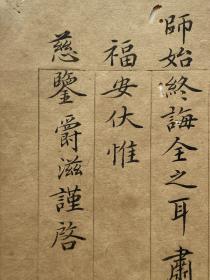 師始終誨全之耳肅
福安伏惟
慈鑒爵滋謹啓